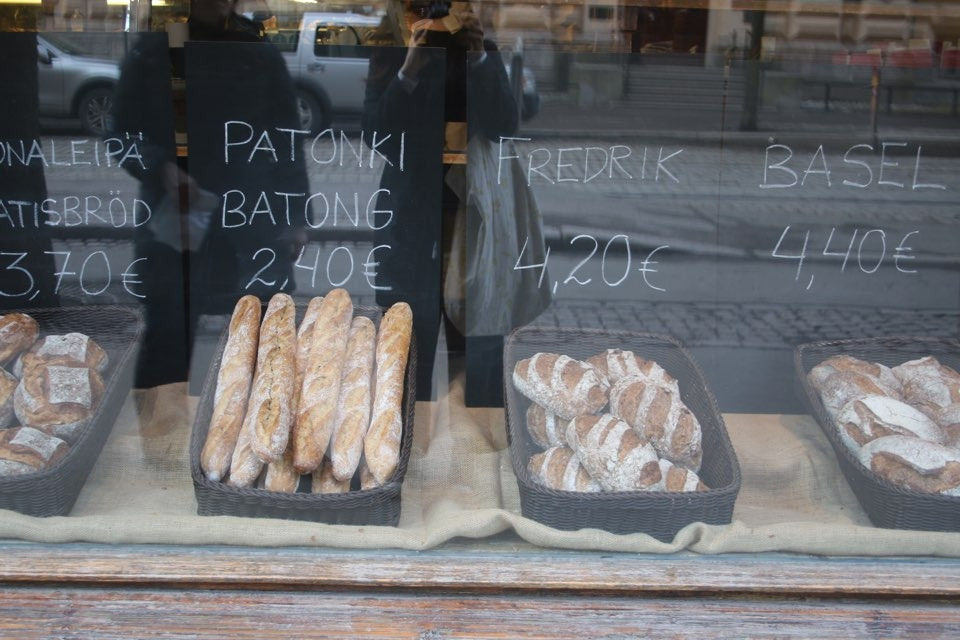 ONALEIPÄ
ATISBRÖD
3,70€
PATONKI
BATONG
2,40€
FREDRIK
4,20€
BASEL
4,40€